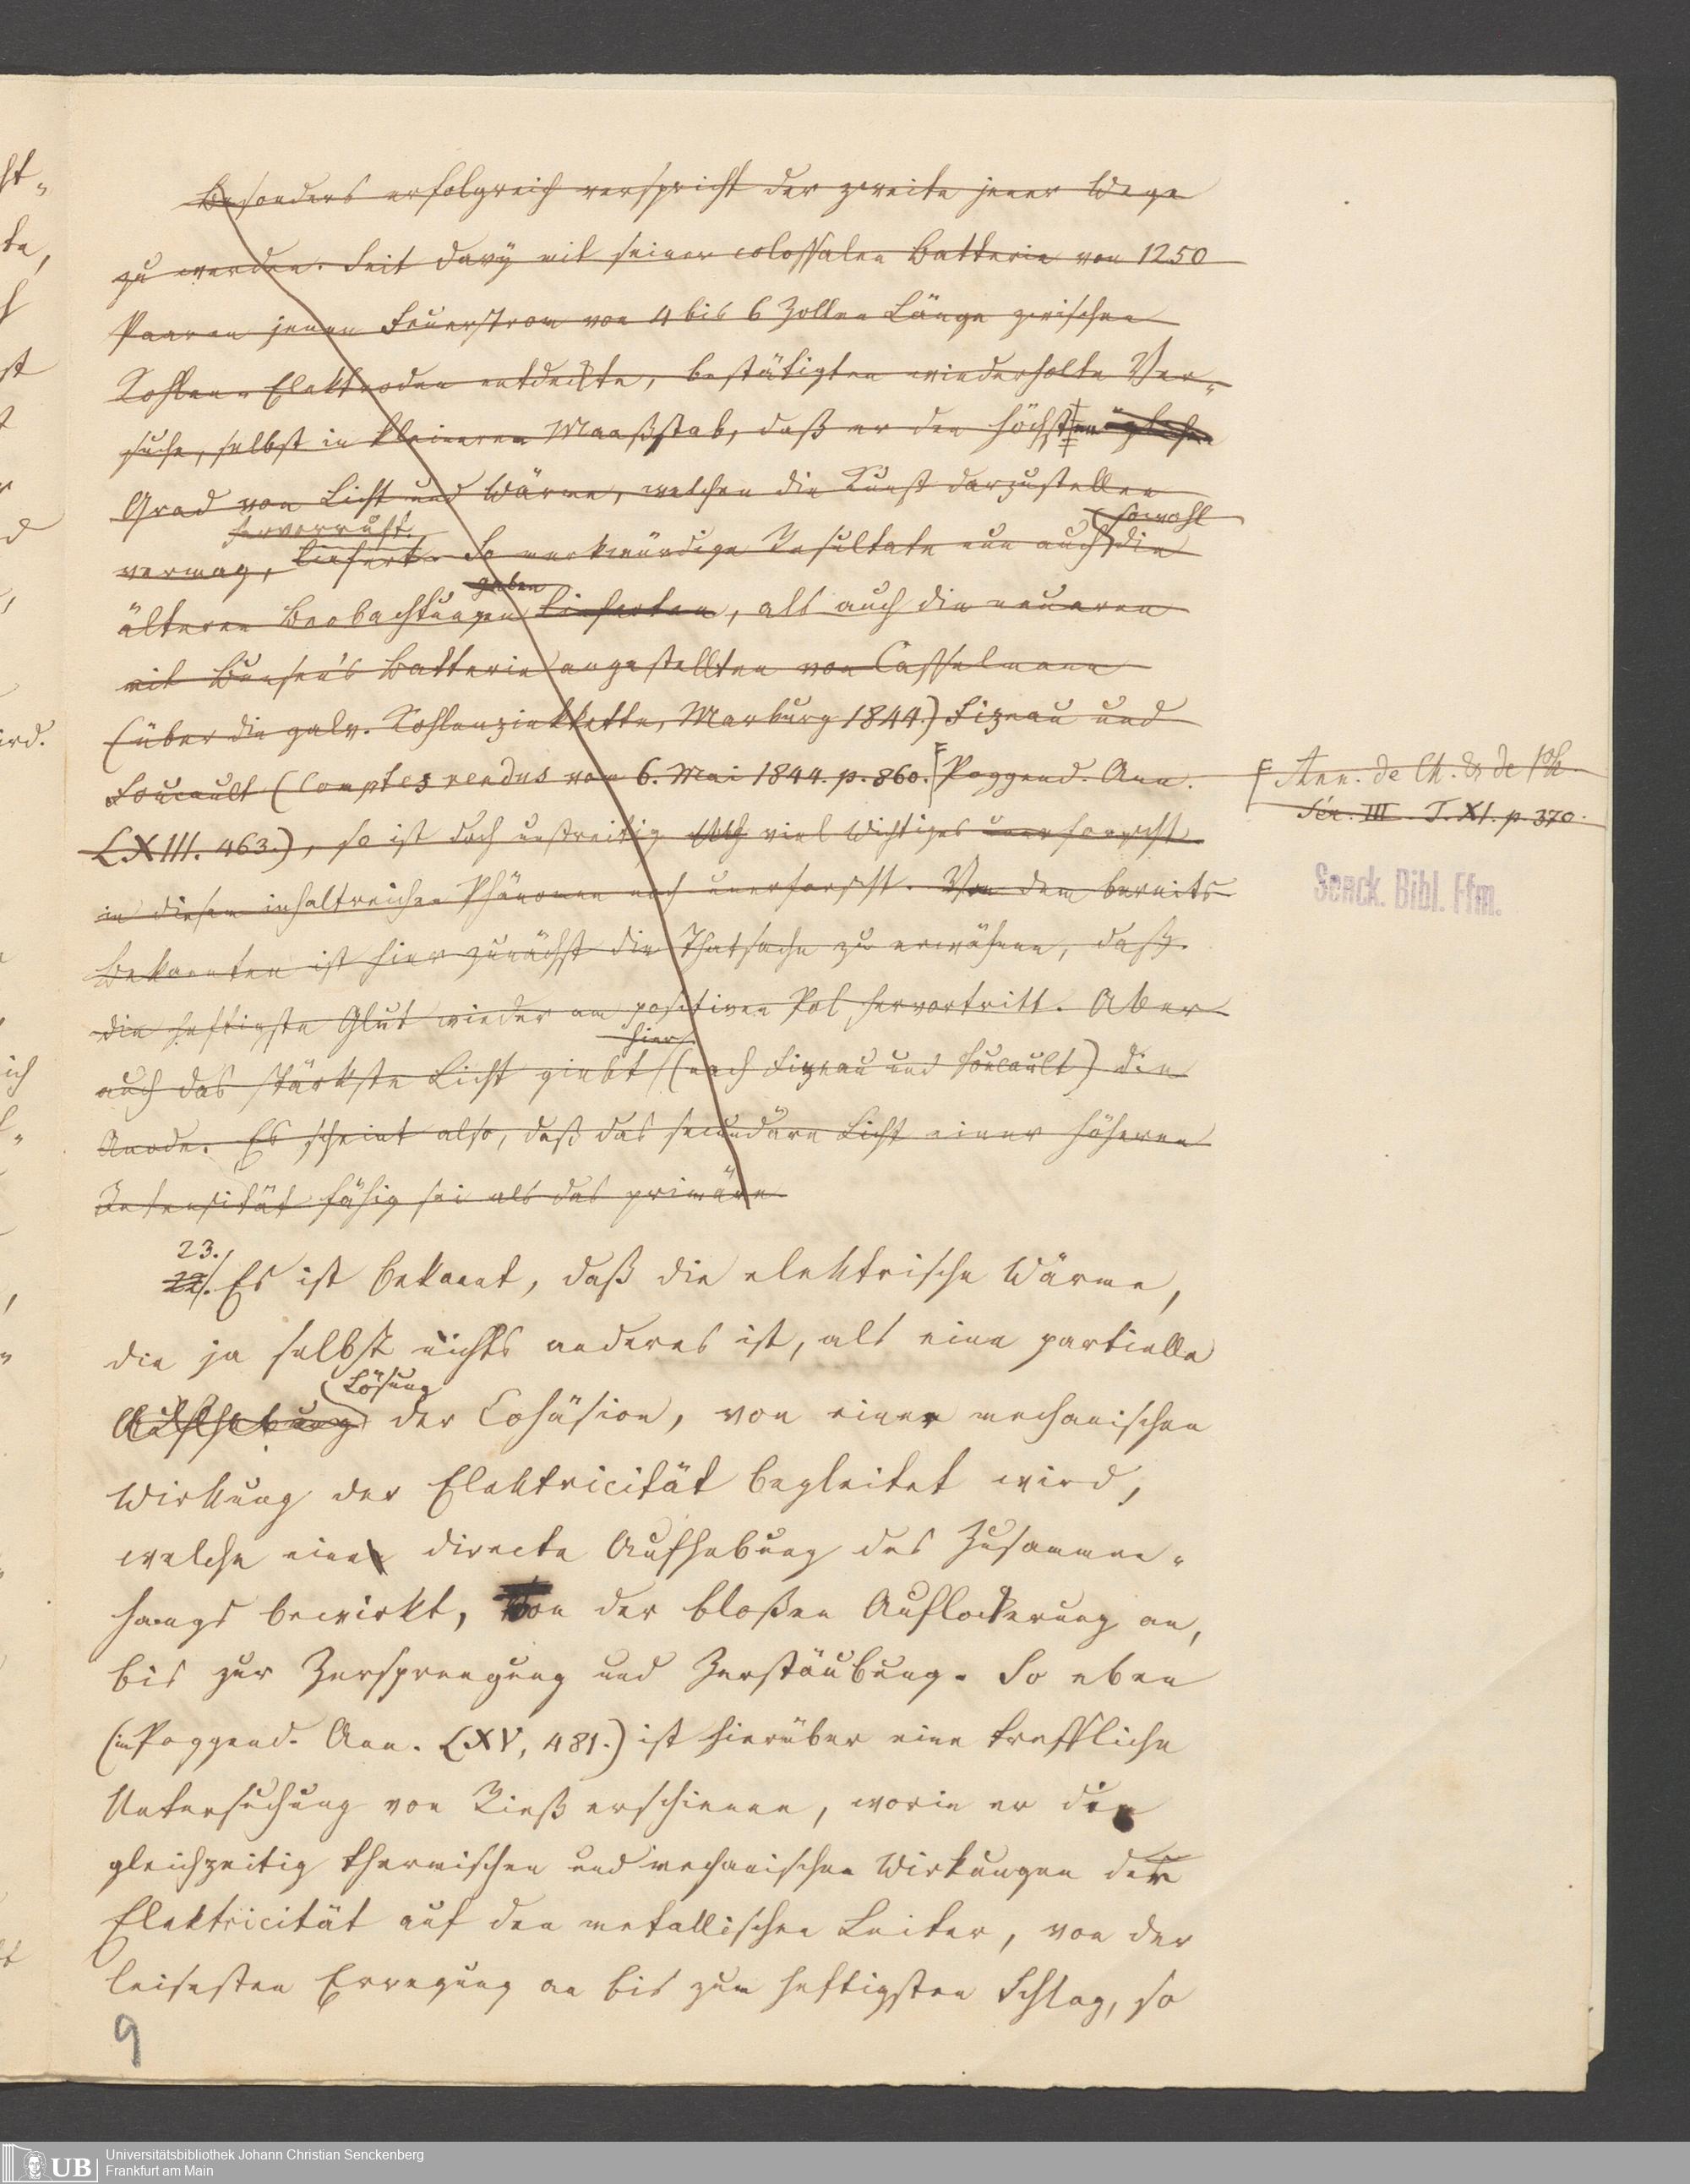 Besonders erfolgreich verspricht der zweite jener Wege
zu werden. Seit Davy mit seiner colossalen Batterie von 1250
Paaren jenen Feuerstrom von 4 bis 6 Zollen Länge zwischen
Kohlen-Elektroden entdeckte, bestätigten wiederholte Ver-
suche, selbst in kleinerem Maaßstab, daß er den höchsten
Grad von Licht und Wärme, welchen die Kunst darzustellen
hervorruft.
sowohl
vermag, liefert. So merkwürdige Resultate nun auch die
gaben
älteren Beobachtungen lieferten, als auch die neueren
mit Bunsen's Batterie angestellten von Casselmann
(über die galv. Kohlenzinkkette, Marburg 1844.) Fizeau und
Foucault (Comptes rendus vom 6. Mai 1844. p. 860. Poggend. Ann.
Ann. de Ch. & de Ph.
Sér. III. T. XI. p. 370.
LXIII. 463.), so ist doch unstreitig viel Wichtiges unerforscht
in diesem inhaltreichen Phänomen noch unerforscht. Von dem bereits
Bekannten ist hier zunächst die Thatsache zu erwähnen, daß
die heftigste Glut wieder am positiven Pol hervortritt. Aber
hier
auch das stärkste Licht giebt (nach Fizeau und Foucault) die
Anode. Es scheint also, daß das secundäre Licht einer höheren
Intensität fähig sei als das primäre
Senck. Bibl. Ffm.
23.
22. Es ist bekannt, daß die elektrische Wärme,
die ja selbst nichts anderes ist, als eine partielle
Lösung
Aufhebung der Cohäsion, von einer mechanischen
Wirkung der Elektricität begleitet wird,
welche eine directe Aufhebung des Zusammen-
hangs bewirkt, von der bloßen Auflockerung an,
bis zur Zersprengung und Zerstäubung. So eben
(in Poggend. Ann. LXV, 481.) ist hierüber eine treffliche
Untersuchung von Rieß erschienen, worin er die
gleichzeitig thermischen und mechanischen Wirkungen der
Elektricität auf den metallischen Leiter, von der
leisesten Erregung an bis zum heftigsten Schlag, so
9
UB Universitätsbibliothek Johann Christian Senckenberg
Frankfurt am Main